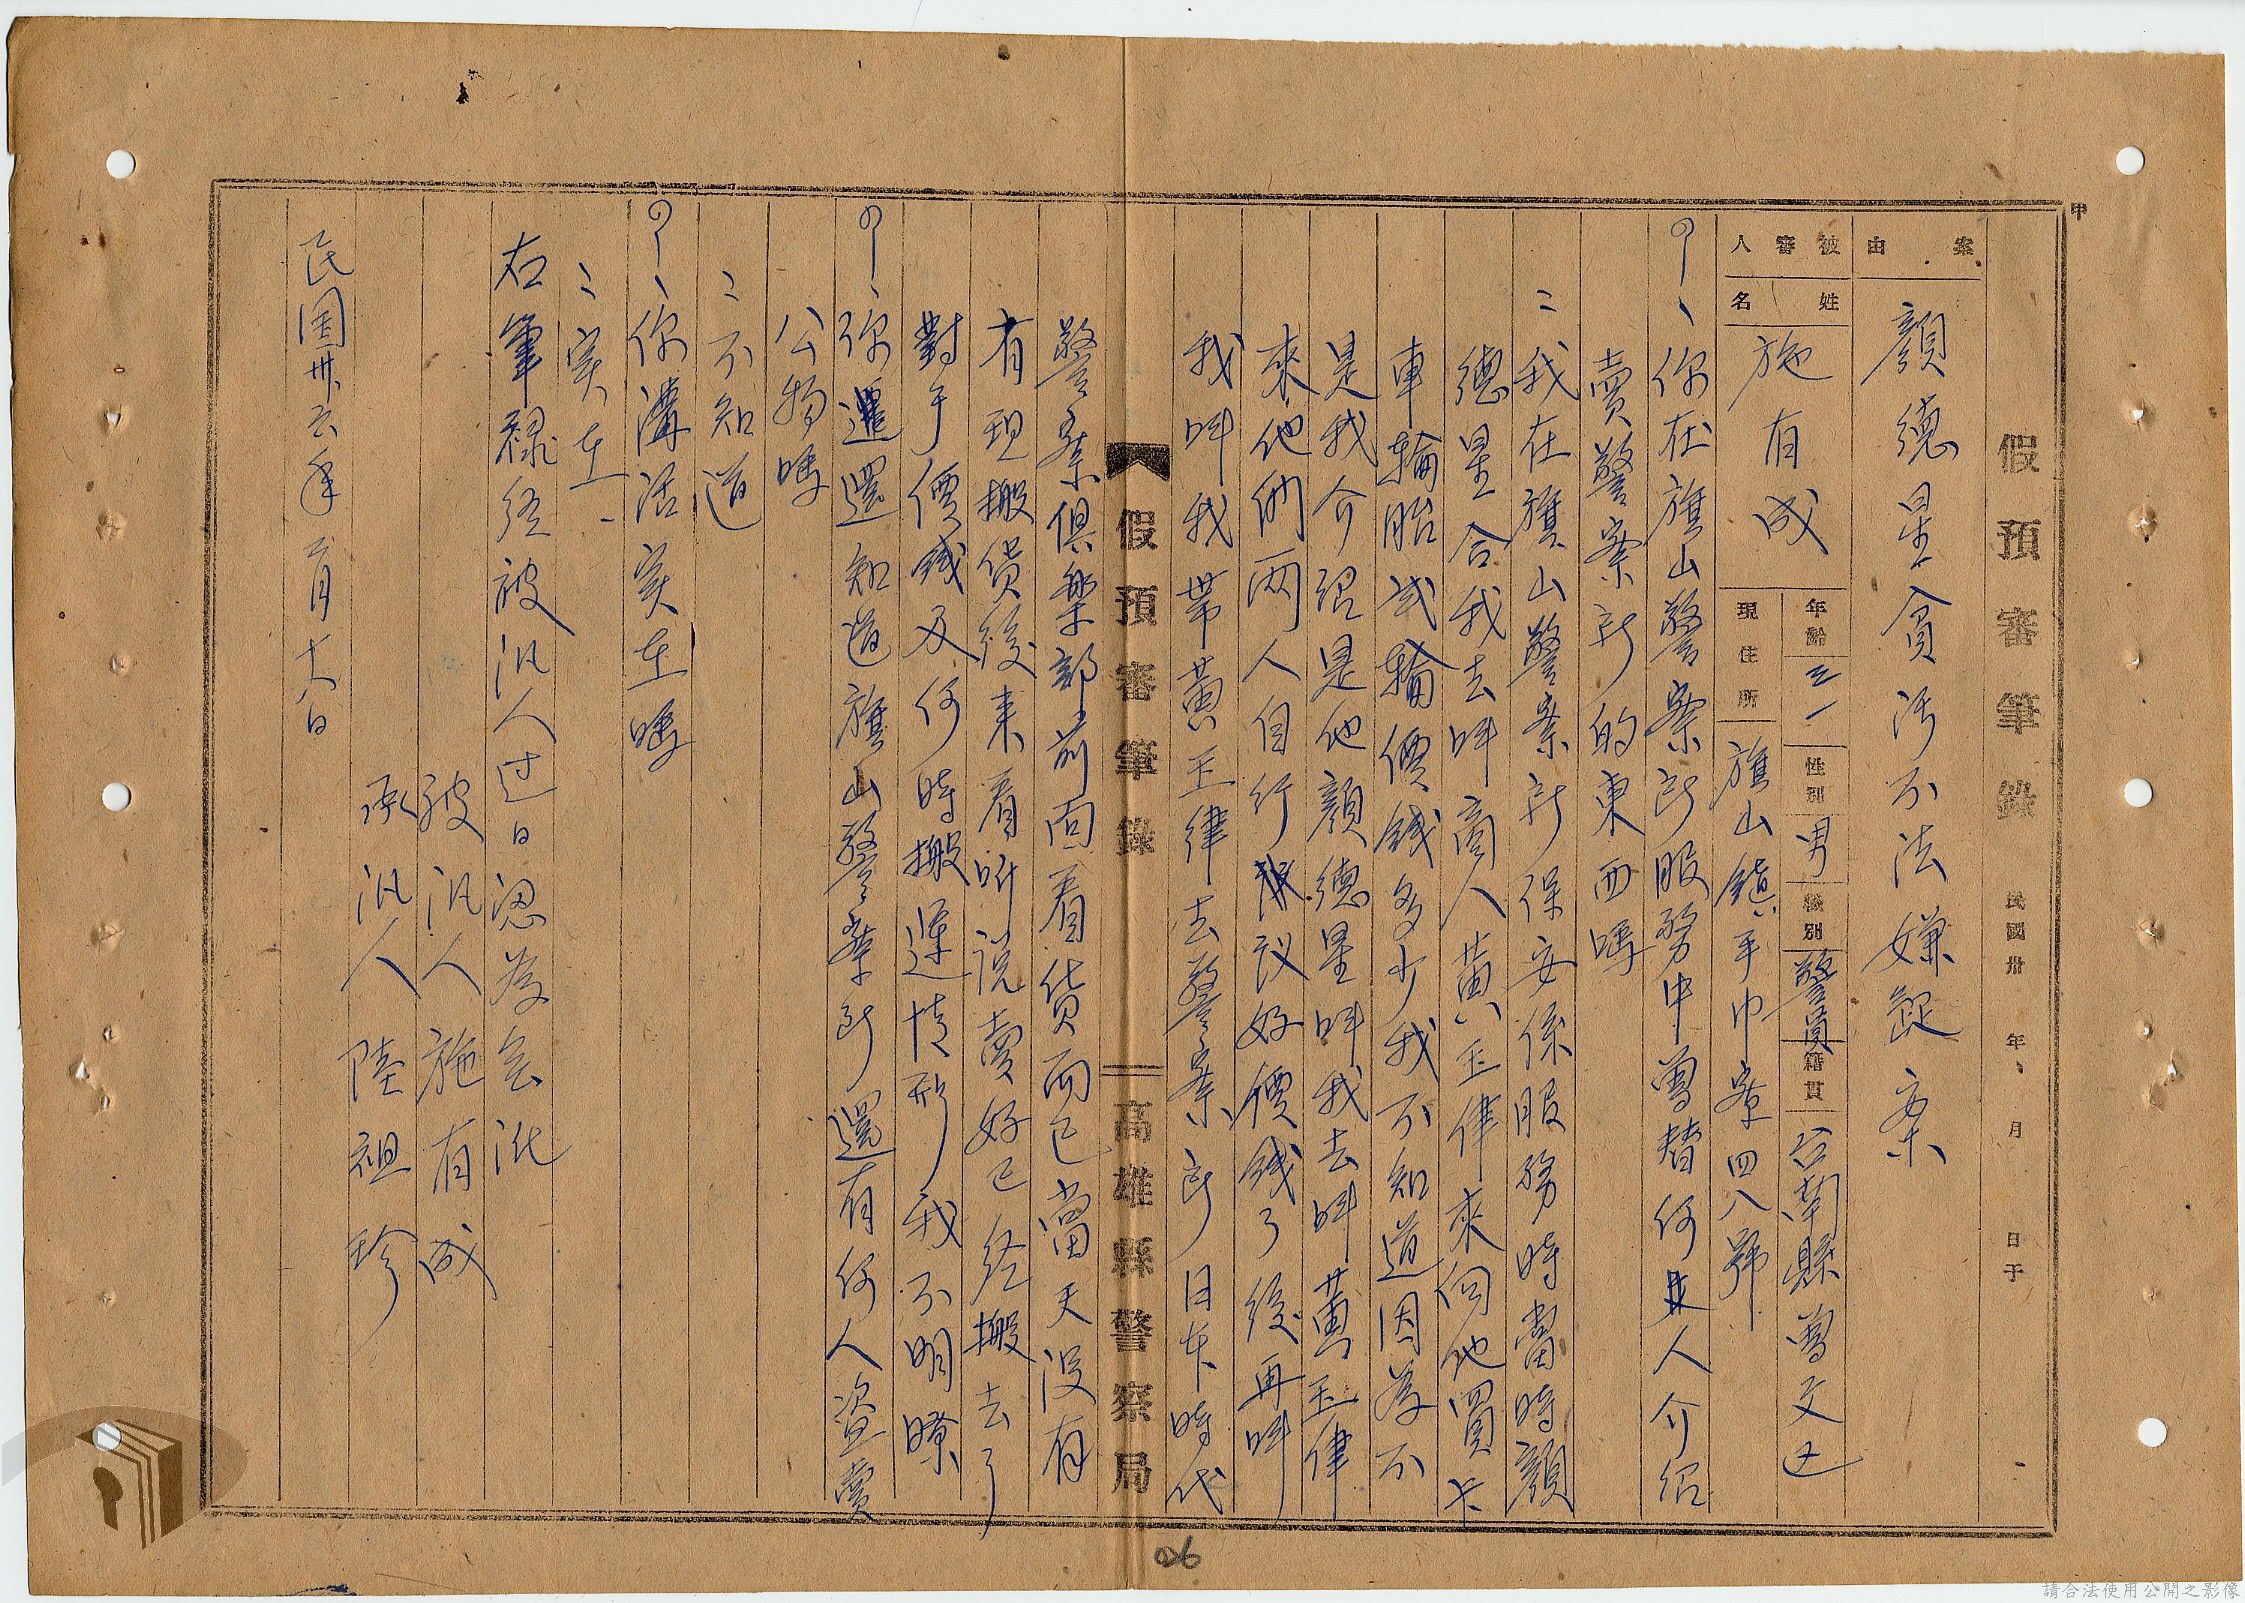 甲
假預審筆錄 民國卅 年 月 日于
案由 顏德星貪污不法嫌疑案
被審人 姓名 施有成 年齡 三一 性別 男 職別 警員 籍貫 台南縣曾文區
現住所 旗山鎮手巾寮四八號
你在旗山警察所服務中曾替何人介紹
賣警察所的東西嗎
我在旗山警察所保安係服務時當時顏
德星合我去叫商人黃玉律來向他買卡
車輪胎式輪價錢多少我不知道因為不
是我介紹是他顏德星叫我去叫黃玉律
來他們兩人自行議好價錢了後再叫
我叫我帶黃玉律去警察所日本時代
假預審筆錄 高雄縣警察局
警察俱樂部前面看貨而已當天沒有
有現搬貨後來看听說賣好已经搬去了
對于價錢及何時搬運情形我不明瞭
你還知道旗山警察所還有何人盜賣
公物嗎
不知道
你講活实在嗎
实在
右筆禄经被汎人过日認為会汎
被汎人施有成
承汎人陸祖珍
民国卅六年 月十八日
26
請合法使用公開之影像